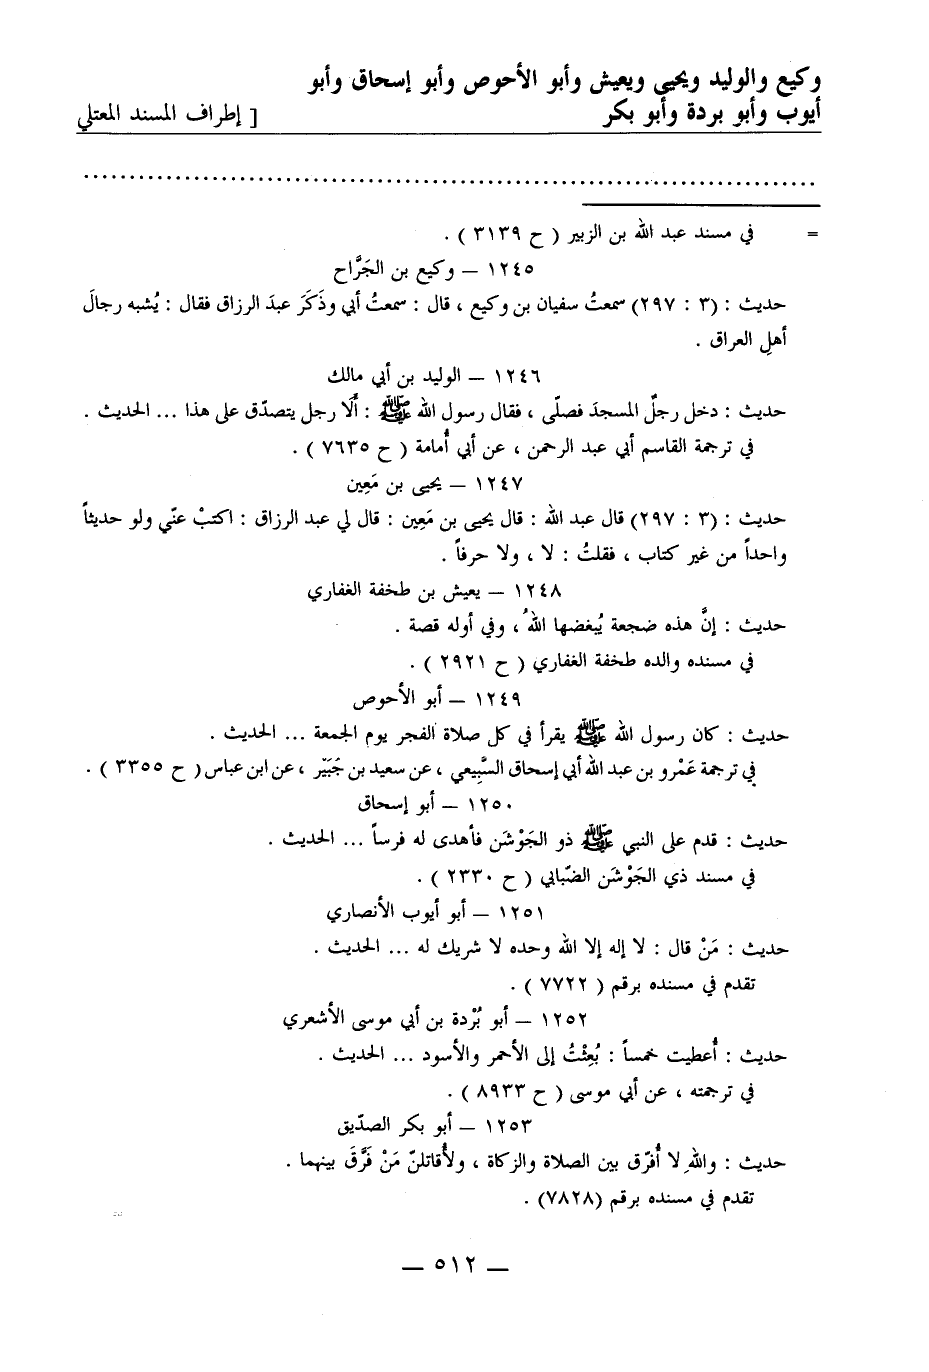 وكيع والوليد ويحيى ويعيش وأبو الأحوص وأبو إسحاق وأبو
أيوب وأبو بردة وأبو بكر [ إطراف المسند المعتلي
= في مسند عبد الله بن الزبير ( ح ٣١٣٩ ) .
١٢٤٥ – وكيع بن الجَرَّاح
حديث : (٣ : ٢٩٧) سمعتُ سفيان بن وكيع ، قال : سمعتُ أبي وذَكَرَ عبدَ الرزاق فقال : يُشبه رجالَ
أهلِ العراق .
١٢٤٦ – الوليد بن أبي مالك
حديث : دخل رجلٌ المسجدَ فصلّى ، فقال رسول الله ﷺ : أَلا رجل يتصدّق على هذا ... الحديث .
في ترجمة القاسم أبي عبد الرحمن ، عن أبي أُمامة ( ح ٧٦٣٥ ) .
١٢٤٧ – يحيى بن مَعِين
حديث : (٣ : ٢٩٧) قال عبد الله : قال يحيى بن مَعِين : قال لي عبد الرزاق : اكتبْ عنّي ولو حديثاً
واحداً من غير كتاب ، فقلتُ : لا ، ولا حرفاً .
١٢٤٨ – يعيش بن طخفة الغفاري
حديث : إنَّ هذه ضجعة يُبغضها اللهُ ، وفي أوله قصة .
في مسنده والده طخفة الغفاري ( ح ٢٩٢١ ) .
١٢٤٩ – أبو الأحوص
حديث : كان رسول الله ﷺ يقرأ في كل صلاة الفجر يوم الجمعة ... الحديث .
في ترجمة عَمْرو بن عبد الله أبي إسحاق السَّبِيعي ، عن سعيد بن جَبَيْر ، عن ابن عباس ( ح ٣٣٥٥ ) .
١٢٥٠ – أبو إسحاق
حديث : قدم على النبي ﷺ ذو الجَوْشَن فأهدى له فرساً ... الحديث .
في مسند ذي الجَوْشَن الضّبابي ( ح ٢٣٣٠ ) .
١٢٥١ – أبو أيوب الأنصاري
حديث : مَنْ قال : لا إله إلا الله وحده لا شريك له ... الحديث .
تقدم في مسنده برقم ( ٧٧٢٢ ) .
١٢٥٢ – أبو بُرْدة بن أبي موسى الأشعري
حديث : أُعطيت خمساً : بُعِثْتُ إلى الأحمر والأسود ... الحديث .
في ترجمته ، عن أبي موسى ( ح ٨٩٣٣ ) .
١٢٥٣ – أبو بكر الصدّيق
حديث : واللهِ لا أُفرّق بين الصلاة والزكاة ، ولأُقاتلنّ مَنْ فَرَّقَ بينهما .
تقدم في مسنده برقم (٧٨٢٨) .
– ٥١٢ –